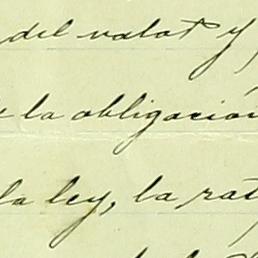 del valor y
la obligación
la ley, la